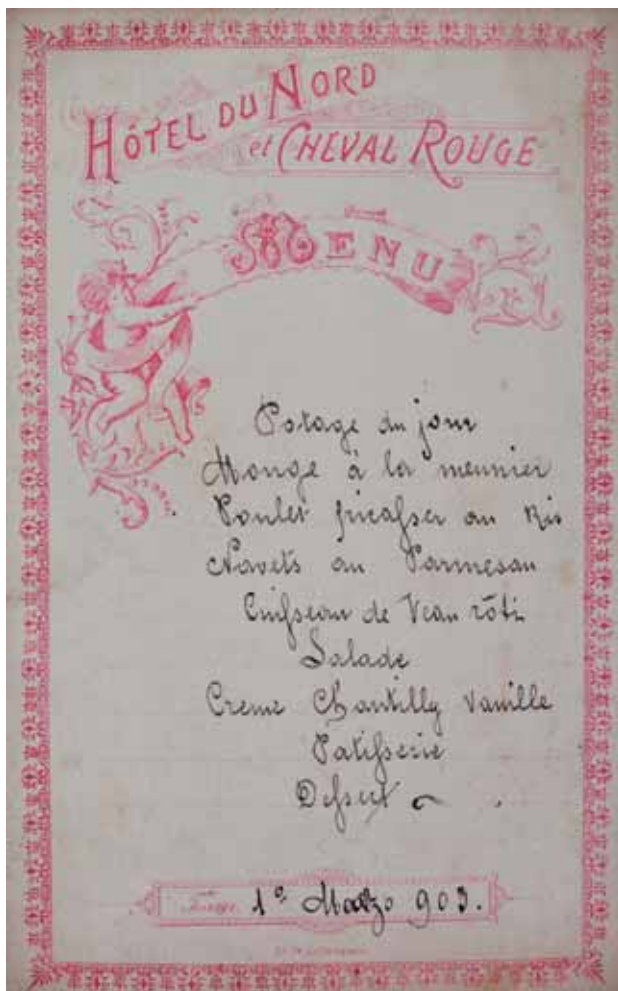 HÔTEL DU NORD
et CHEVAL ROUGE
MENU
Potage du jour
Monge à la meunier
Poulet fricasser au Ris
Navets au Parmesan
Cuisseau de Veau rôti
Salade
Creme Chantilly Vanille
Patisserie
Dessert
1º Marzo 903.